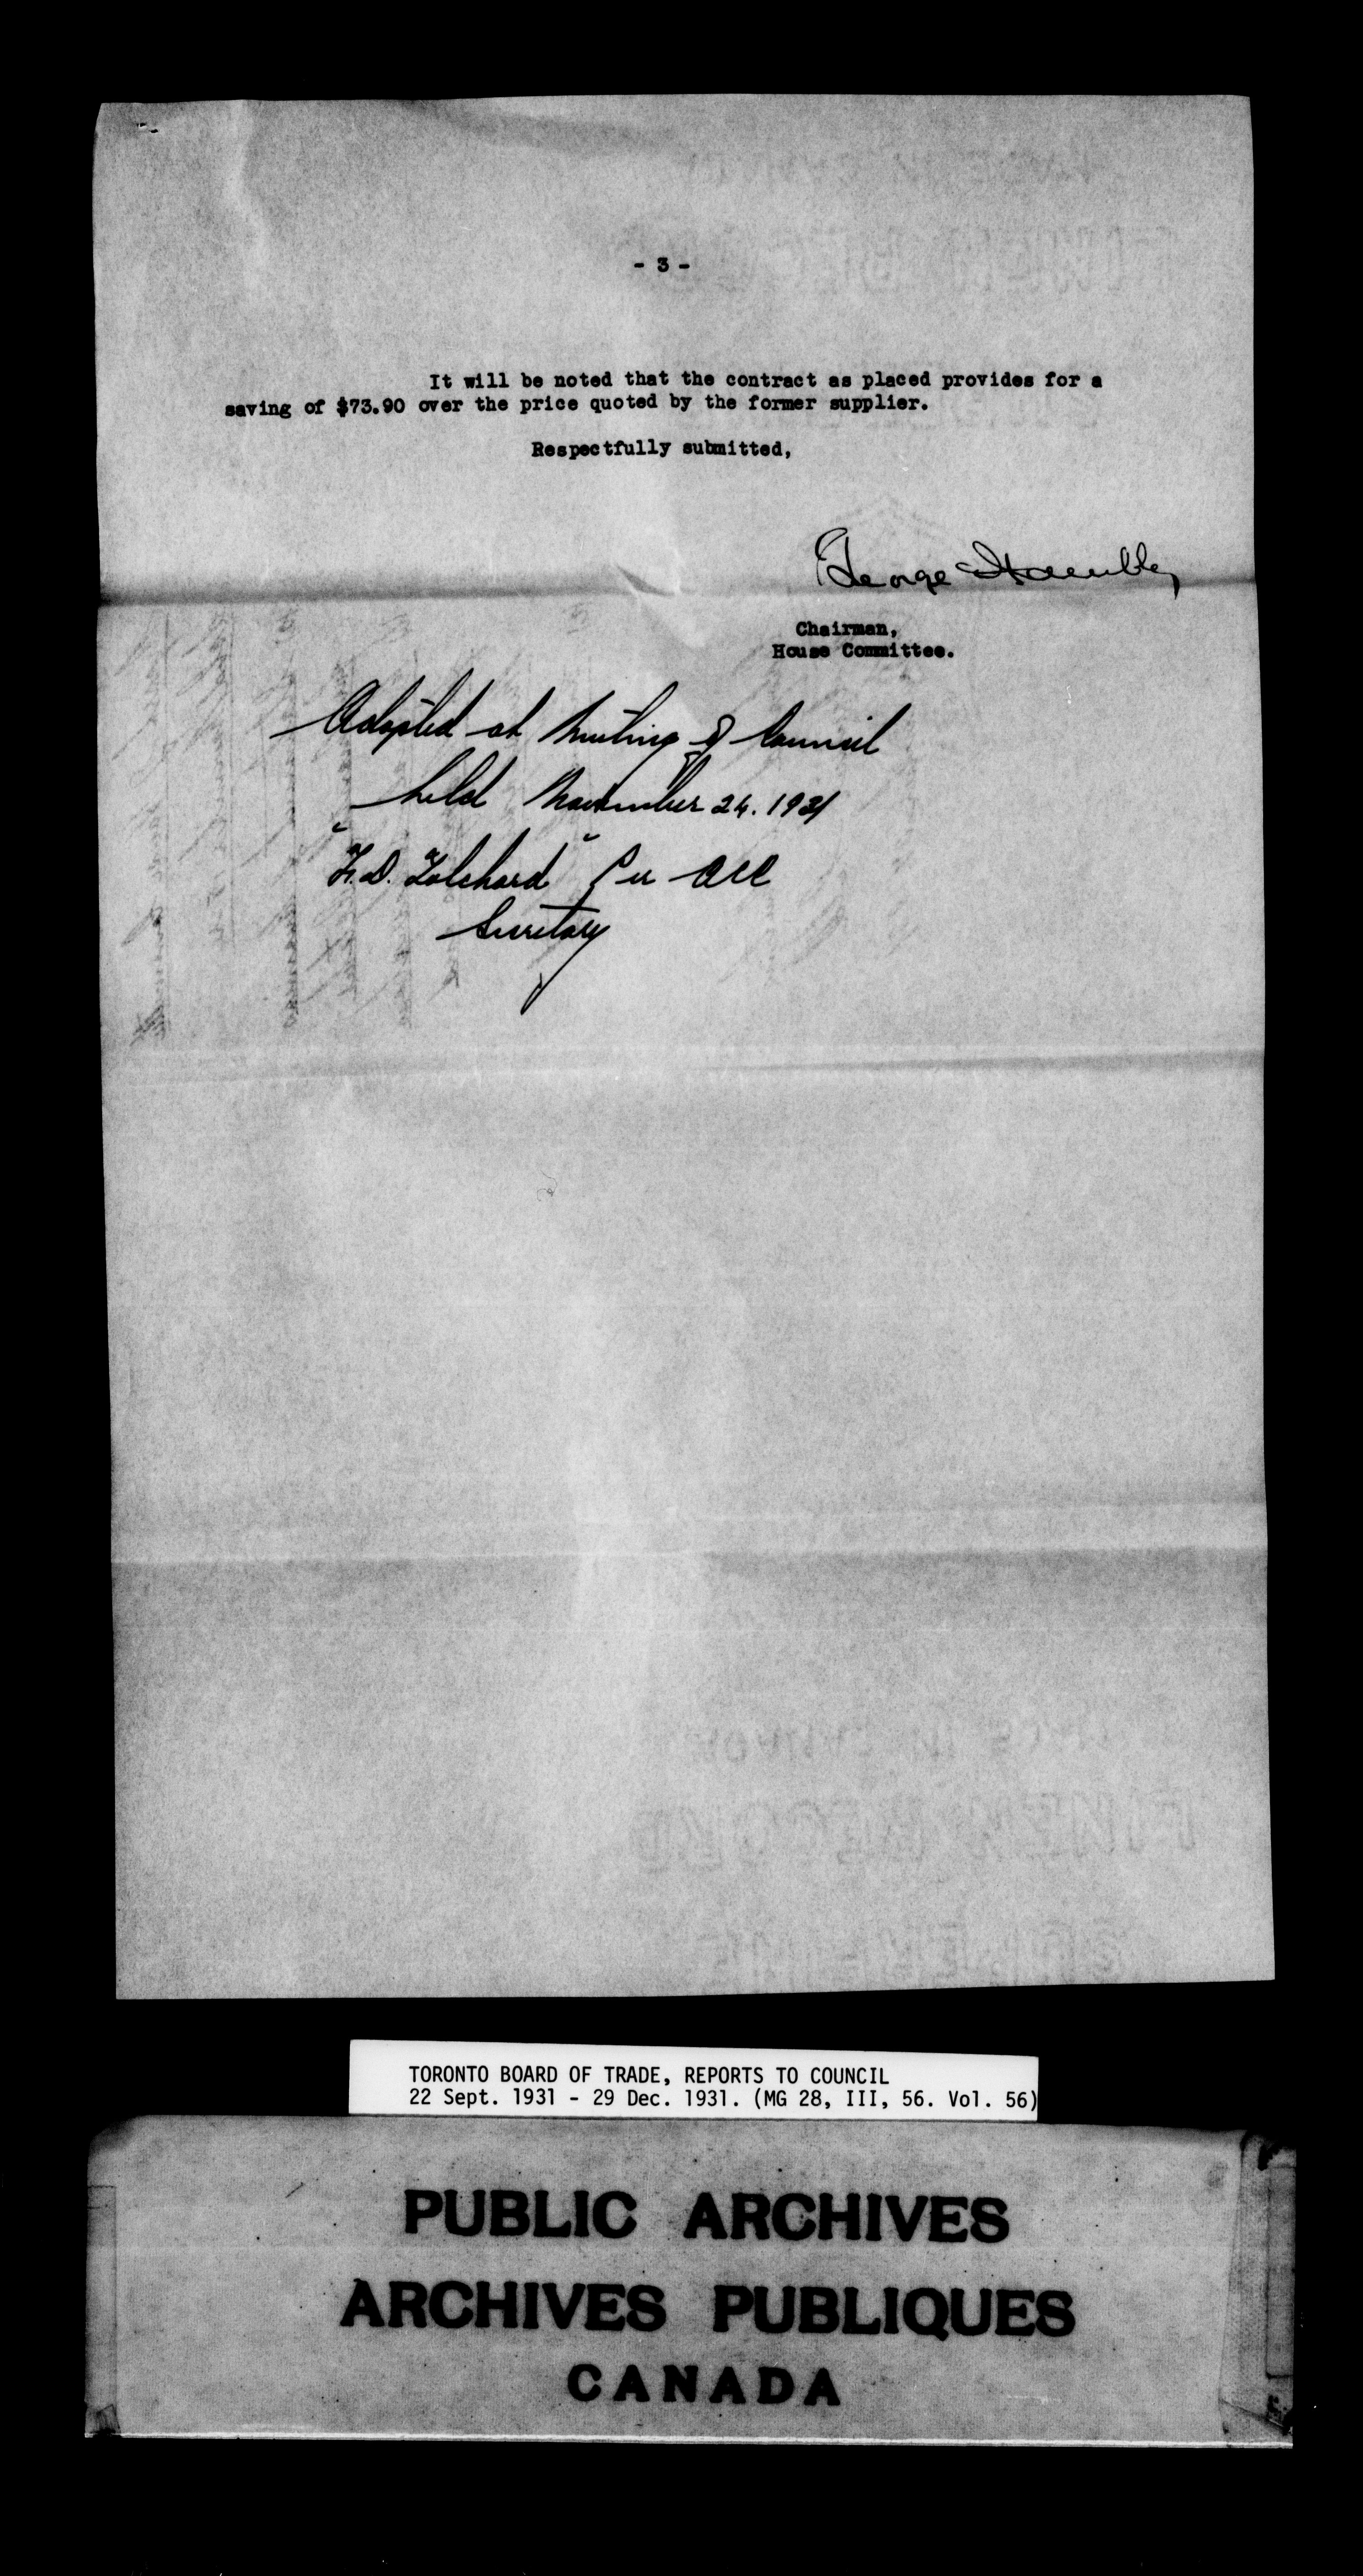 - 3 -
It will be noted that the contract as placed provides for a
saving of $73.90 over the price quoted by the former supplier.
Respectfully submitted,
George
Chairman,
House Committee.
Adopted at Meeting of Council
held November 24. 1931
"F. D. Tolchard" Per
Secretary
TORONTO BOARD OF TRADE, REPORTS TO COUNCIL
22 Sept. 1931 - 29 Dec. 1931. (MG 28, III, 56. Vol. 56)
PUBLIC ARCHIVES
ARCHIVES PUBLIQUES
CANADA